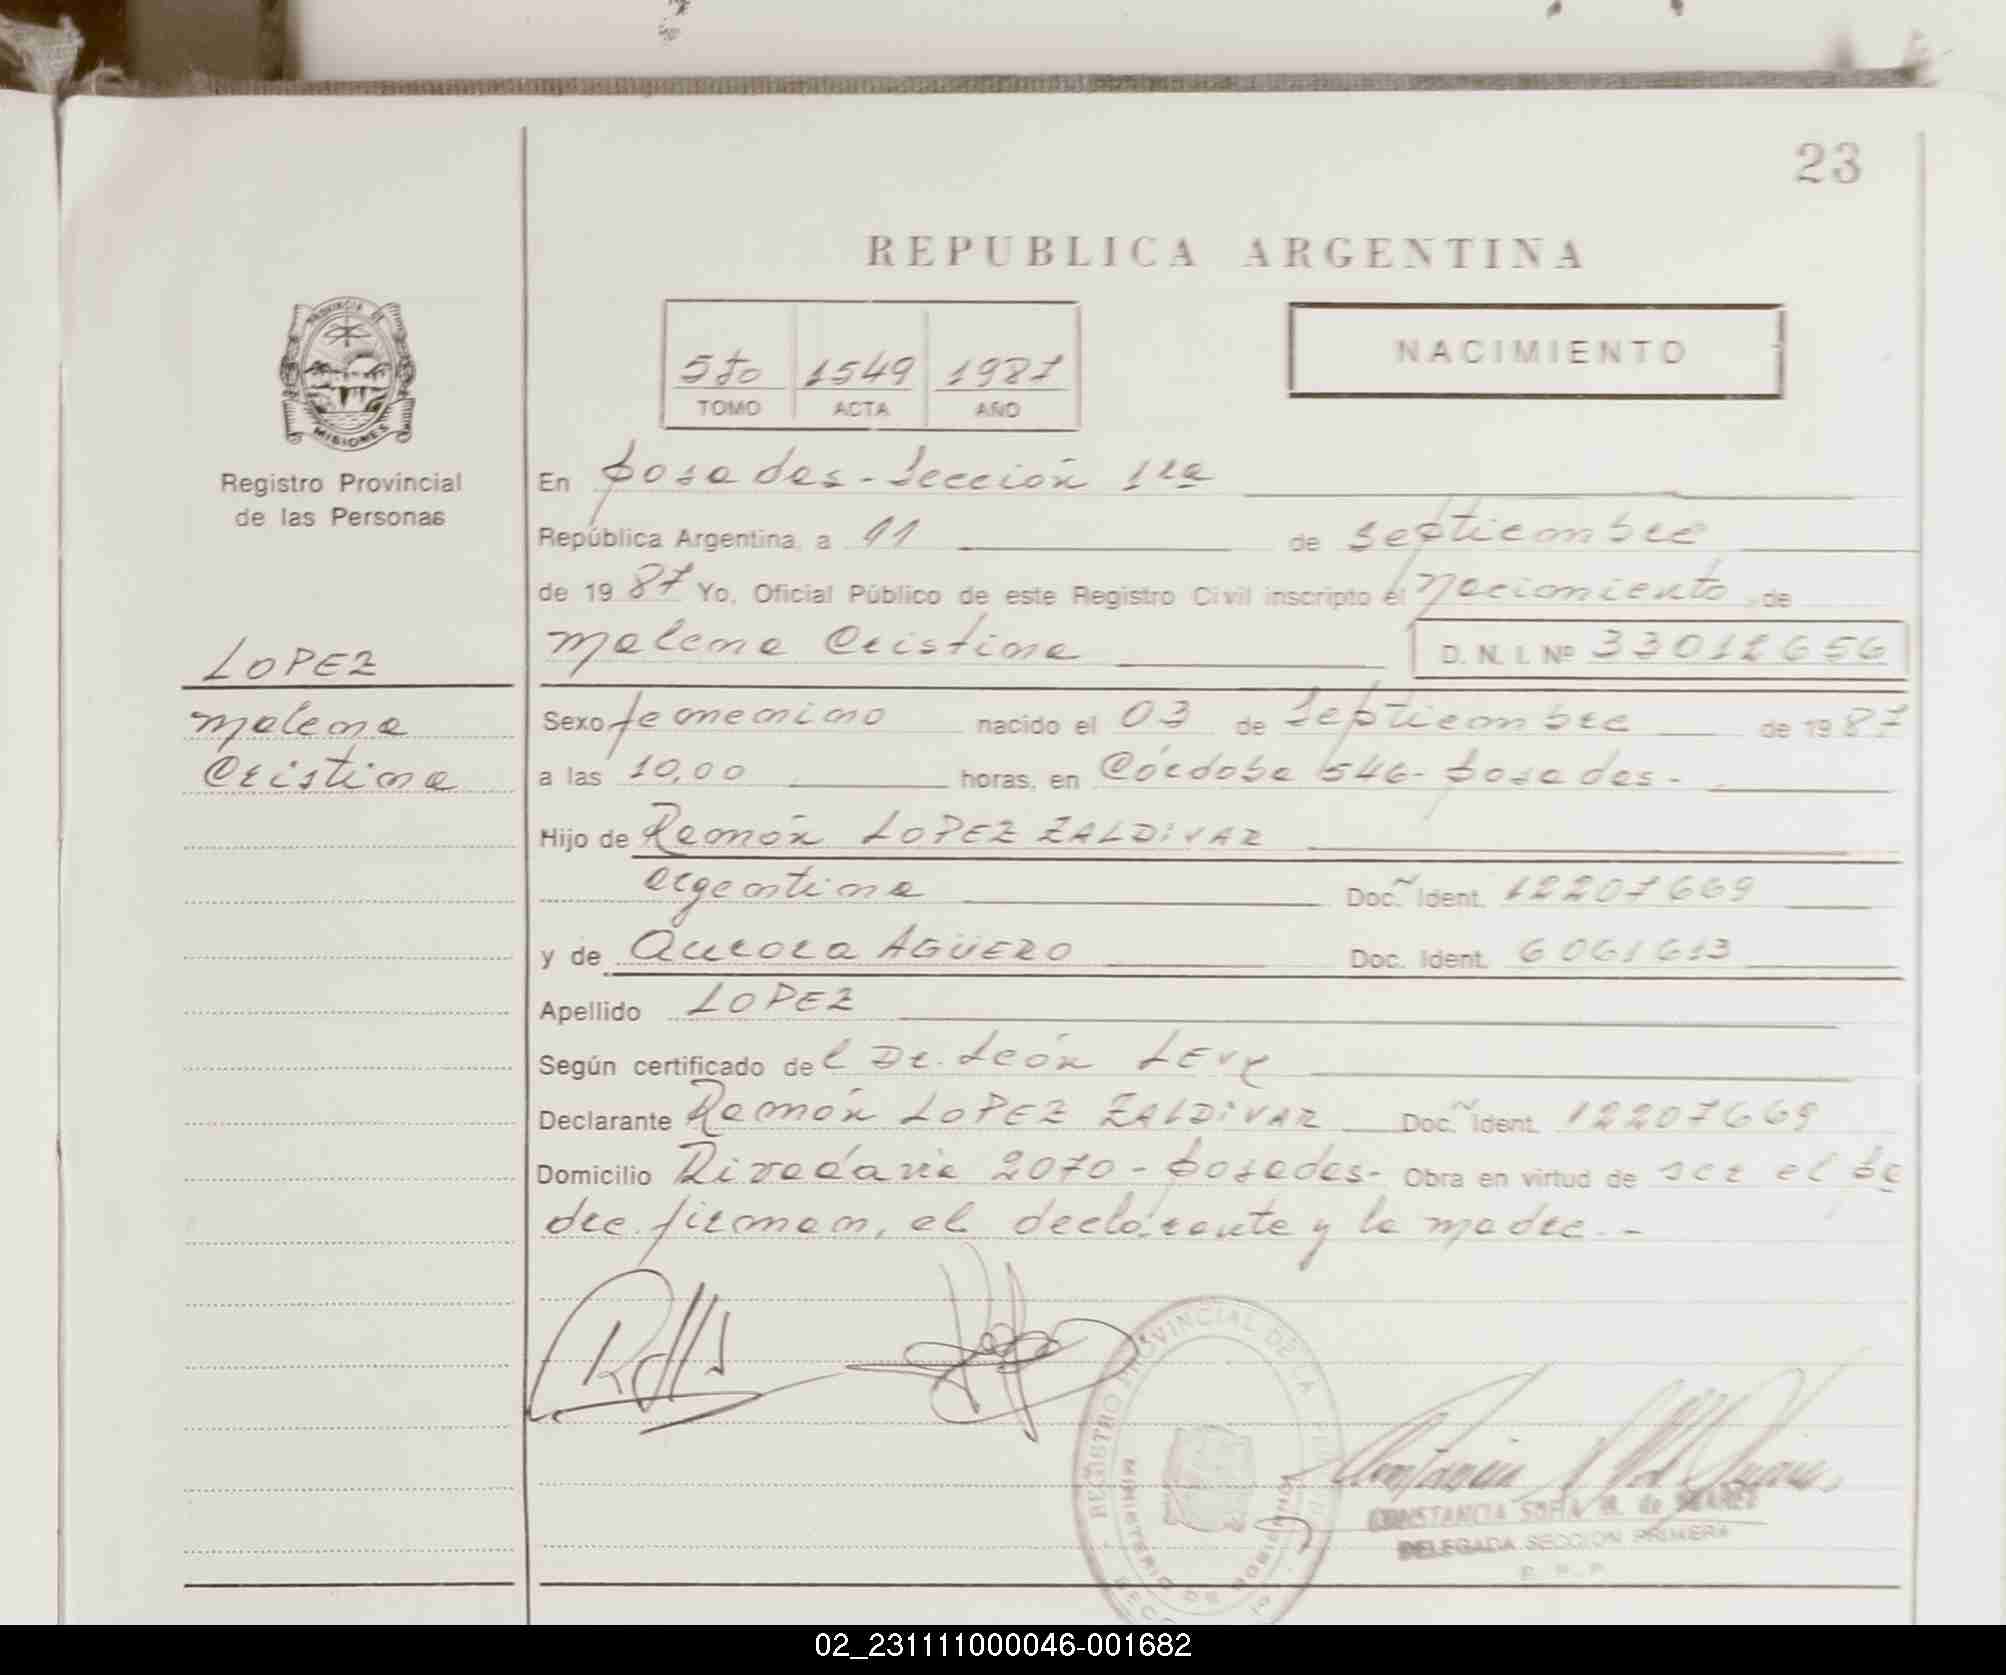 23
REPUBLICA ARGENTINA
PROVINCIA DE
MISIONES
Registro Provincial
de las Personas
5to 1549 1987
TOMO ACTA AÑO
NACIMIENTO
En Posadas - Sección 1ra
República Argentina, a 11 de Septiembre
de 1987 Yo, Oficial Público de este Registro Civil inscripto el Nacimiento, de
Malena Cristina D. N. I. Nº 33012656
LOPEZ
Malena
Cristina
Sexo femenino nacido el 03 de Septiembre de 1987
a las 10,00 horas, en Córdoba 546 - Posadas -
Hijo de Ramón LOPEZ ZALDIVAR
argentina Doc. Ident. 12207669
y de Aurora AGÜERO Doc. Ident. 6061613
Apellido LOPEZ
Según certificado del Dr. León LEVY
Declarante Ramón LOPEZ ZALDIVAR Doc. Ident. 12207669
Domicilio Rivadavia 2070 - Posadas - Obra en virtud de ser el pa
dre. firman, el declarante y la madre. -
REGISTRO PROVINCIAL DE LA
MINISTERIO DE GOBIERNO
CONSTANCIA SOFIA M. de SUAREZ
DELEGADA SECCION PRIMERA
02_231111000046-001682